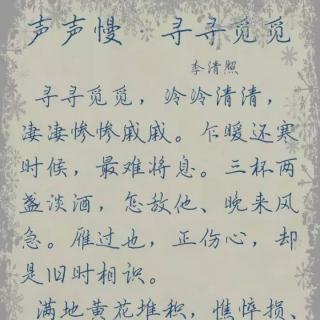 声声慢·寻寻觅觅
李清照
寻寻觅觅，冷冷清清，
凄凄惨惨戚戚。乍暖还寒
时候，最难将息。三杯两
盏淡酒，怎敌他、晚来风
急。雁过也，正伤心，却
是旧时相识。
满地黄花堆积，憔悴损、